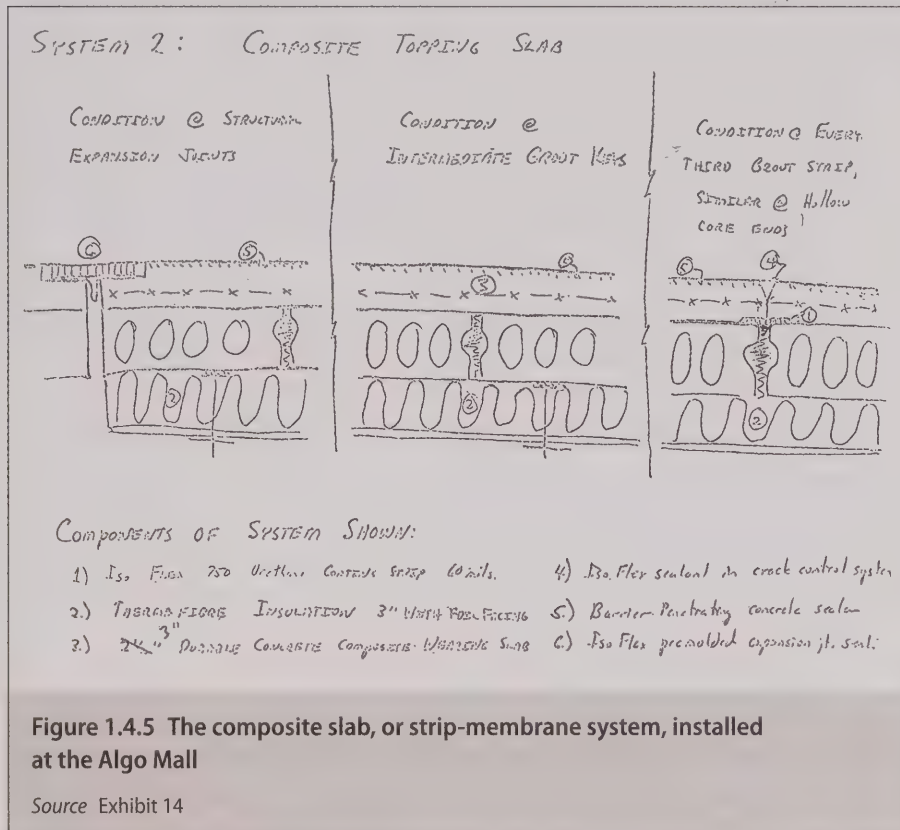 SYSTEM 2: COMPOSITE TOPPING SLAB
CONDITION @ STRUCTURAL
EXPANSION JOINTS
6
5
CONDITION @
INTERMEDIATE GROUT KEYS
3
2
CONDITION @ EVERY
THIRD GROUT STRIP,
SIMILAR @ Hollow
CORE ENDS
5
4
1
2
2
COMPONENTS OF SYSTEM SHOWN:
1) Iso FLEX 750 Urethane COATING STRIP 60 mils.
2.) THERMAFIBRE INSULATION 3" WITH FOIL FACING
3.) 3" DURABLE CONCRETE COMPOSITE WEARING SLAB
4.) Iso Flex sealant in crack control system
5.) Barrier Penetrating concrete sealer
6.) Iso Flex premolded expansion jt. seal.
Figure 1.4.5 The composite slab, or strip-membrane system, installed
at the Algo Mall
Source Exhibit 14